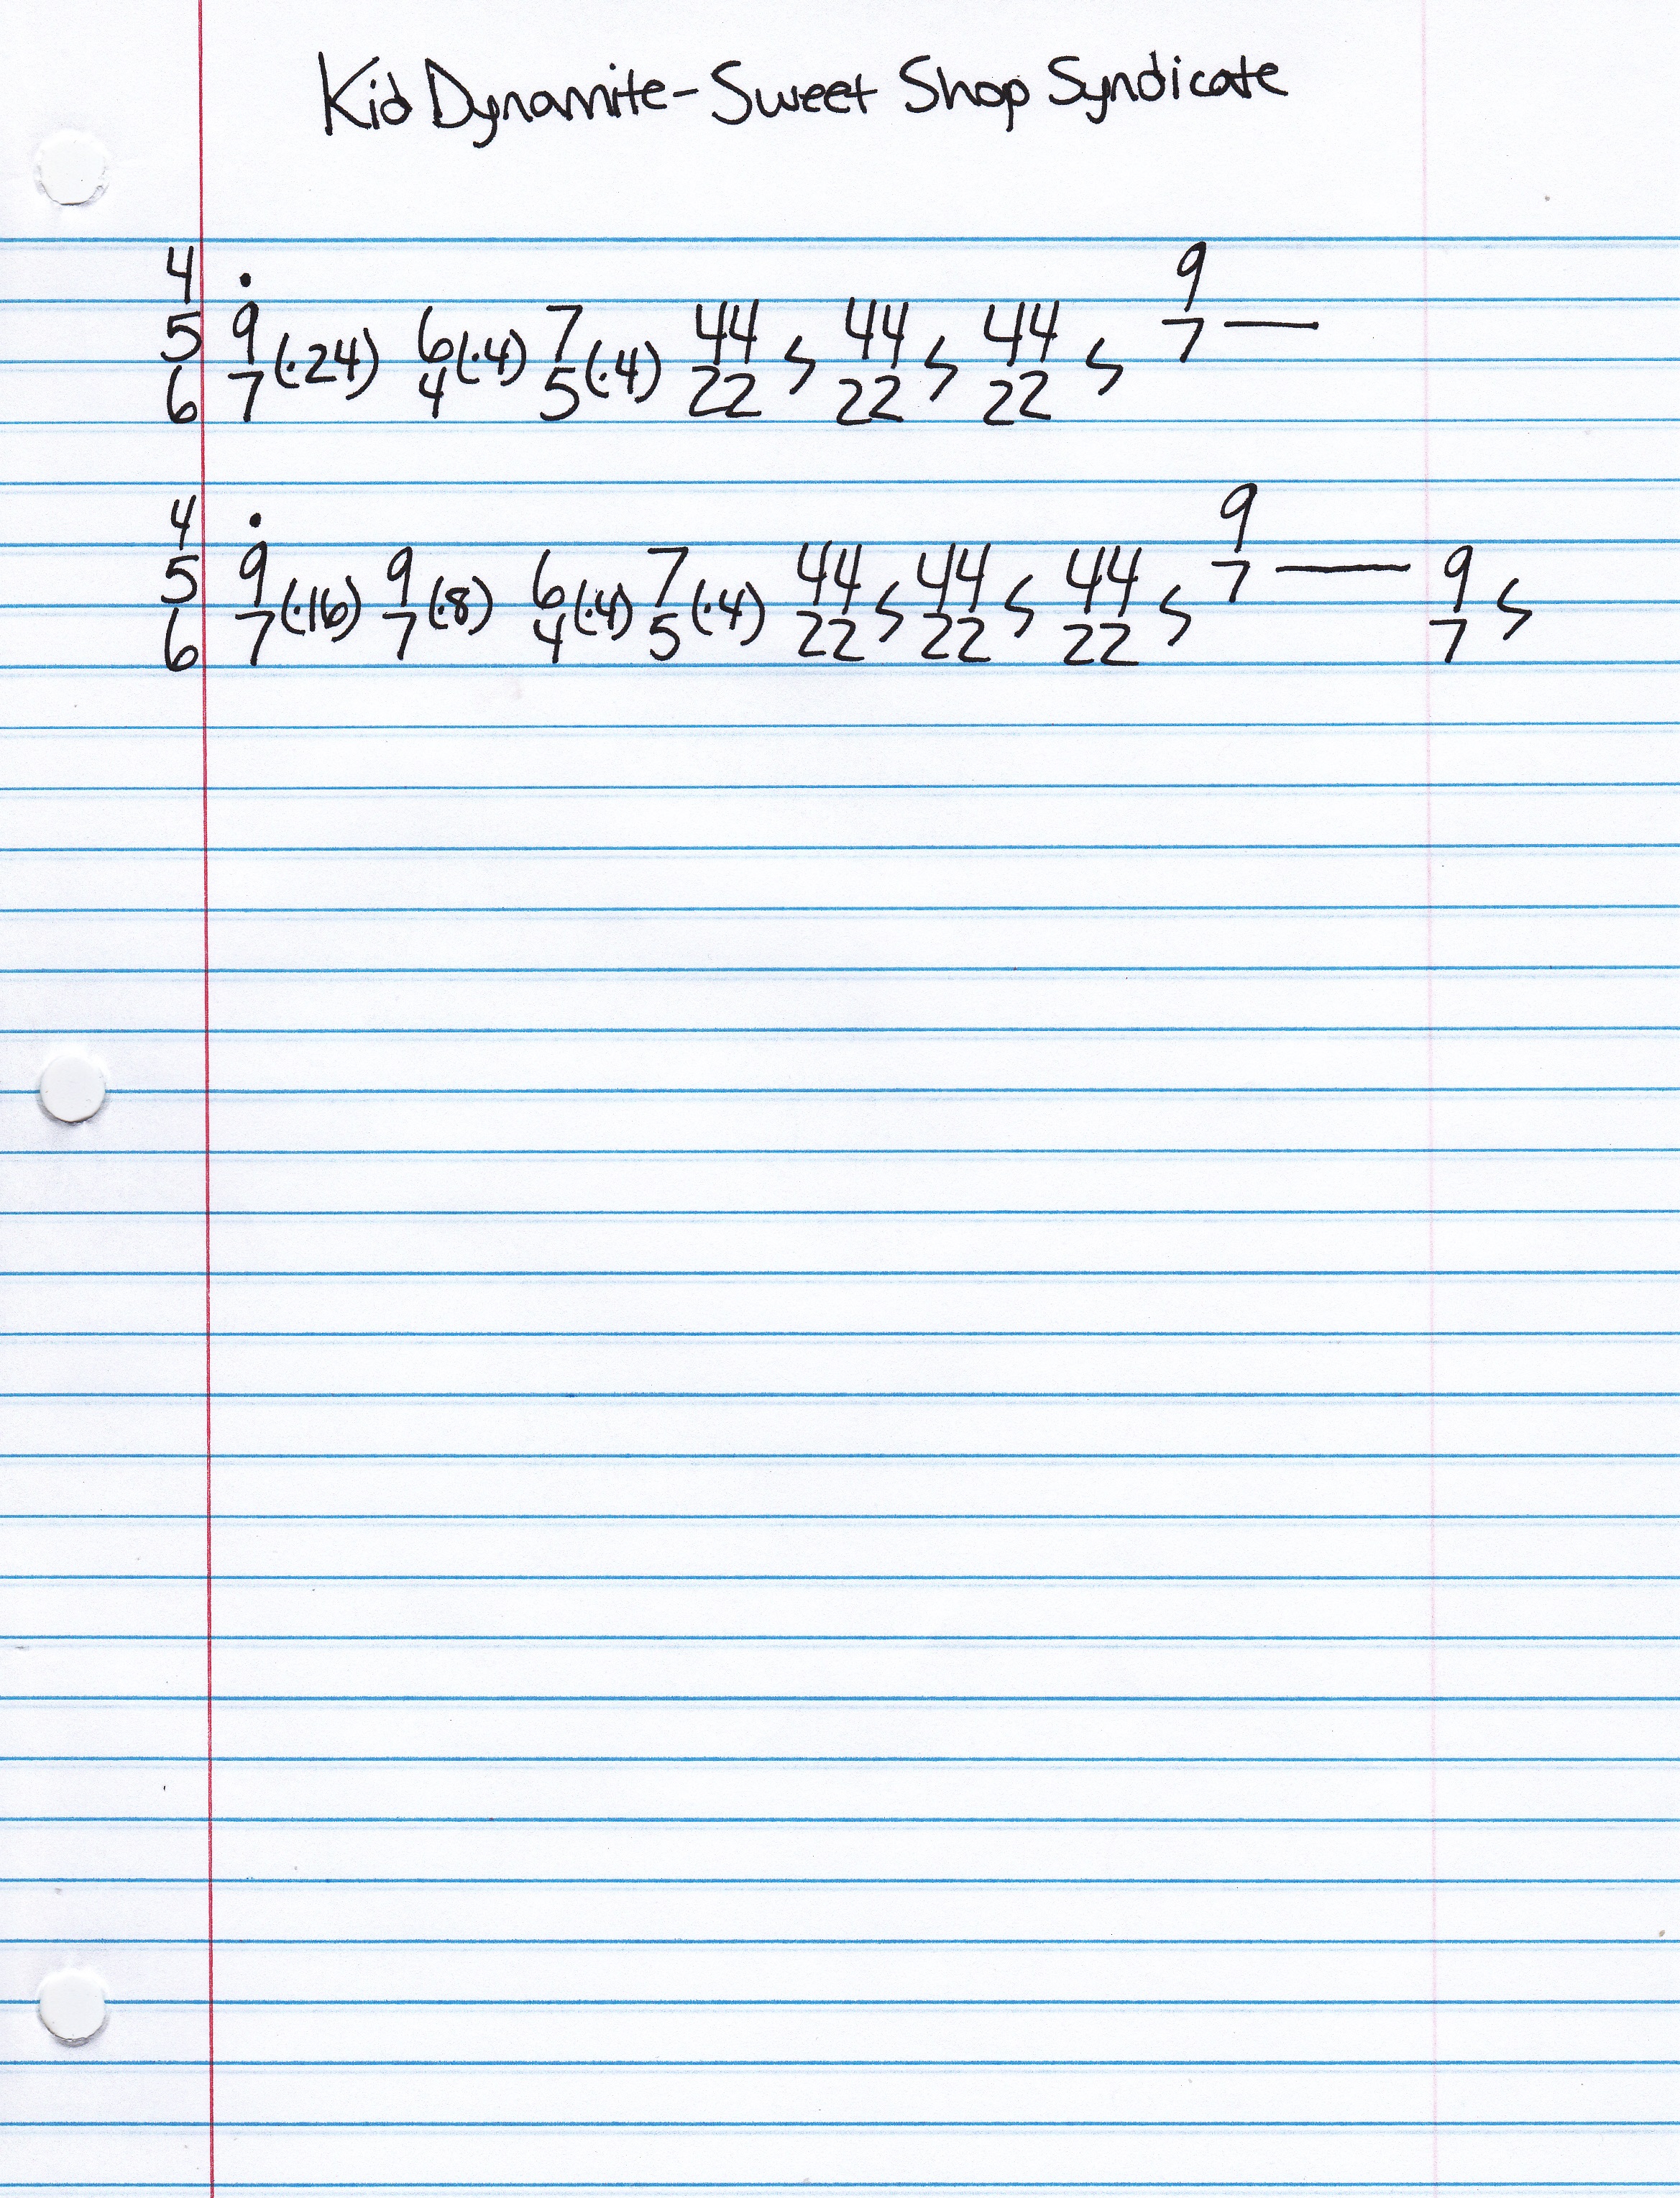 Kid Dynamite - Sweet Shop Syndicate
4 . 9
5 9 (.24) 6 (.4) 7 (.4) 44 44 44 7 —
6 7 4 5 22 22 22
4 . 9
5 9 (.16) 9 (.8) 6 (.4) 7 (.4) 44 44 44 7 — 9
6 7 7 4 5 22 22 22 7